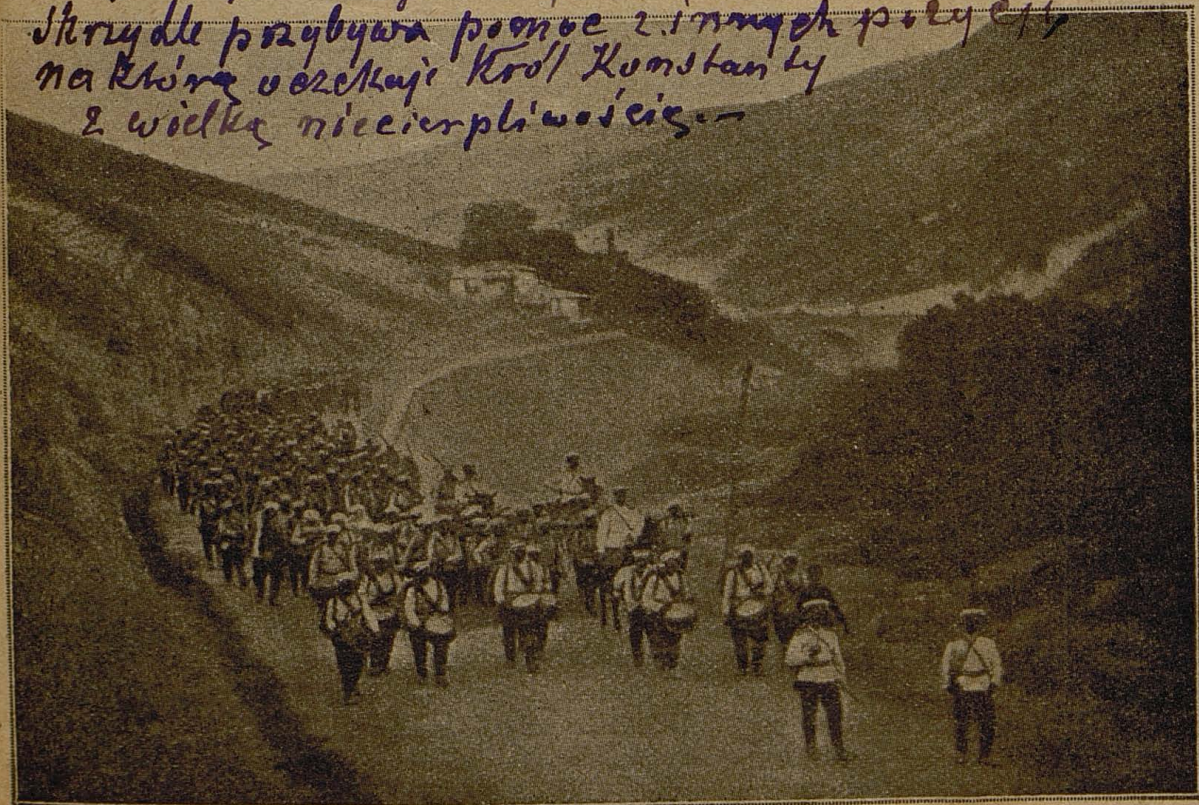 skrzydle przybywa pomoc z innych pozycji,
na którą oczekuje Król Konstanty
z wielką niecierpliwością.—